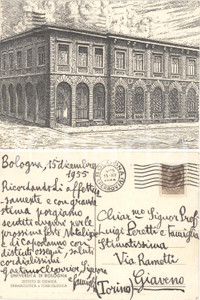 Bologna, 15 dicembre
1955
Ricordandola affettuo-
samente e con grande
stima porgiamo
sentiti auguri per le
prossime feste Natalizie
e di Capodanno con
distinti ossequi, saluti
cordialissimi
Signora
e famiglia
UNIVERSITÀ DI BOLOGNA
ISTITUTO DI CHIMICA
Chiar.mo Signor Prof.
Luigi Peretti e Famiglia
Stimatissima
Via Rametti
Giaveno
(Torino)